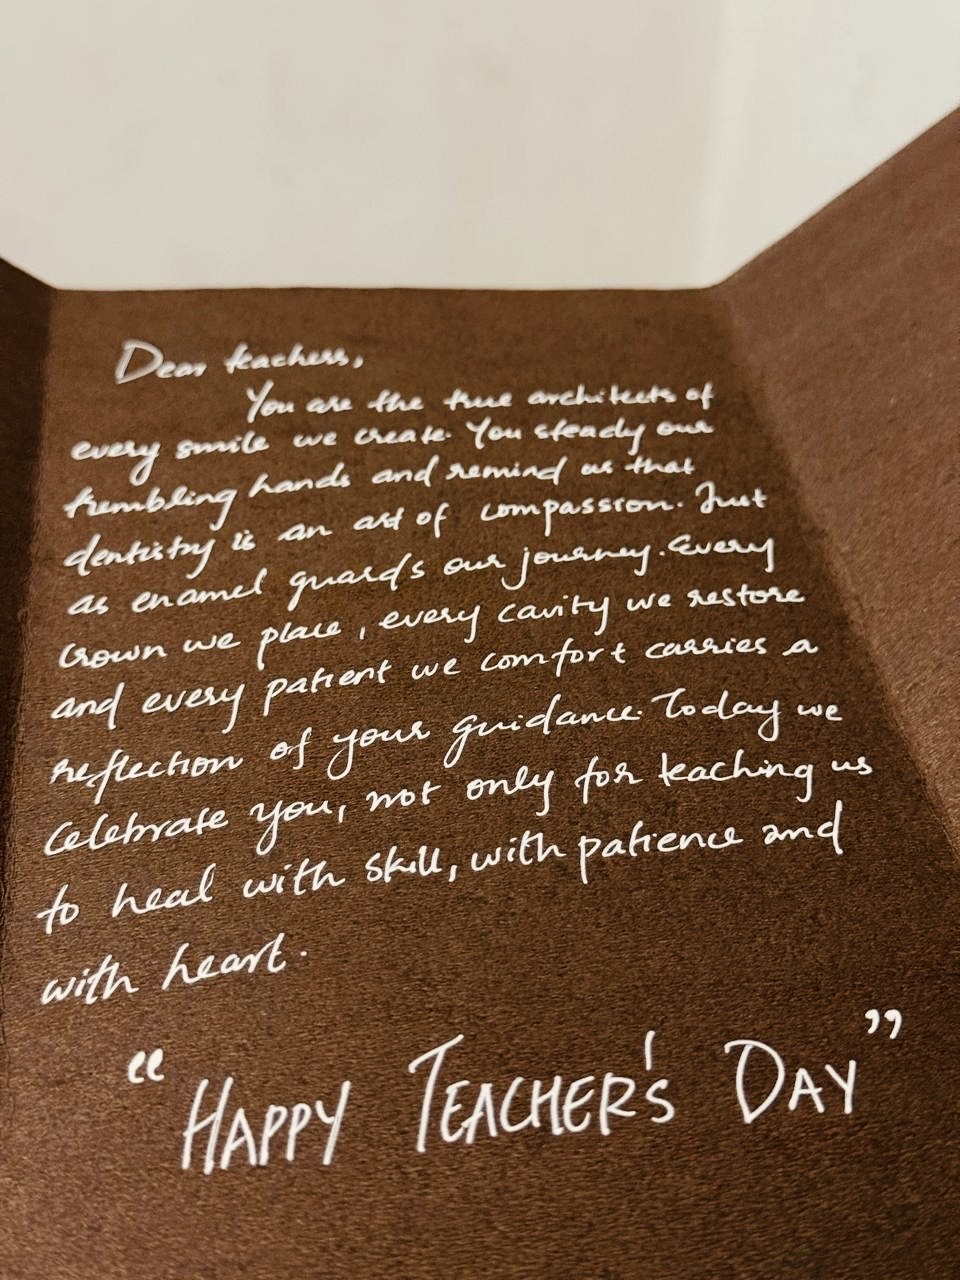 Dear teachers,
You are the true architects of
every smile we create. You steady our
trembling hands and remind us that
dentistry is an art of compassion. Just
as enamel guards our journey. Every
crown we place, every cavity we restore
and every patient we comfort carries a
reflection of your guidance. Today we
celebrate you, not only for teaching us
to heal with skill, with patience and
with heart.
“HAPPY TEACHER'S DAY”